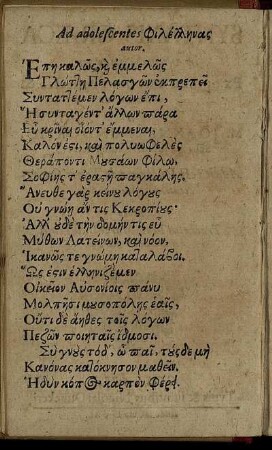 Ad adolescentes Φιλέλληνας
autor.
Ἔπη καλῶς, κ̀ ἐμμελῶς
Γλώττῃ Πελασγῶν ἐκπρεπεῖ
Συνταττέμεν λόγων ἐπι,
Ἢ συνταγέντ' ἄλλων πάρα
Εὖ κρῖναι οἷόντ' ἔμμεναι,
Καλόν ἐςι, καὶ πολυωφελὲς
Θεράποντι Μυσάων φίλῳ,
Σοφίης τ' ἐρατῆ παγκάλης.
Ἄνευθε γὰρ κείνυ λόγυς
Οὐ γνώη ἄν τις Κεκροπίυς·
Ἀλλ' ὐδὲ τὴν δομήν τις εὖ
Μύθων Λατείνων, καὶ νόον,
Ἱκανῶς τε γνώμη καταλάβοι.
Ὥς ἐςιν ἑλληνιζέμεν
Οἰκεῖον Αὐσονίοις πάνυ
Μολπῇσι μυσοπόλης ἑαῖς,
Οὔτι δὲ ἄηθες τοῖς λόγων
Πεζῶν ποιηταῖς ἴδμοσι.
Σὺ γνὺς τόδ', ὦ παῖ, τύςδε μὴ
Κανόνας κατόκνησον μαθεῖν.
Ἡδὺν κόπος καρπὸν φέρει.